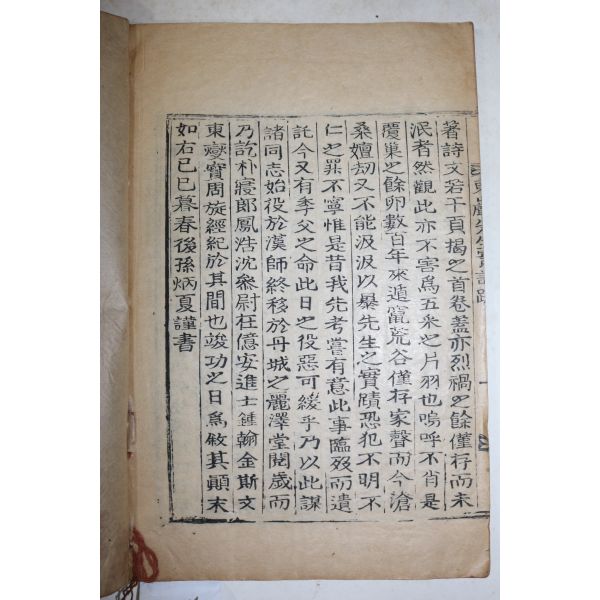 著詩文若干頁揭之首卷蓋亦烈禍之餘僅存而未
泯者然觀此亦不害爲五采之片羽也嗚呼不肖是
覆巢之餘卵數百年來遁竄荒谷僅存家聲而今滄
桑嬗劫又不能汲汲以暴先生之實蹟恐犯不明不
仁之罪不寧惟是昔我先考嘗有意此事臨歿而遺
託今又有季父之命此日之役惡可緩乎乃以此謀
諸同志始役於漢師終移於丹城之麗澤堂閱歲而
乃訖朴寢郞鳳浩沈參尉在億安進士鍾翰金斯文
東燮實周旋經紀於其間也竣功之日爲敘其顚末
如右己巳暮春後孫炳夏謹書
先生實記跋